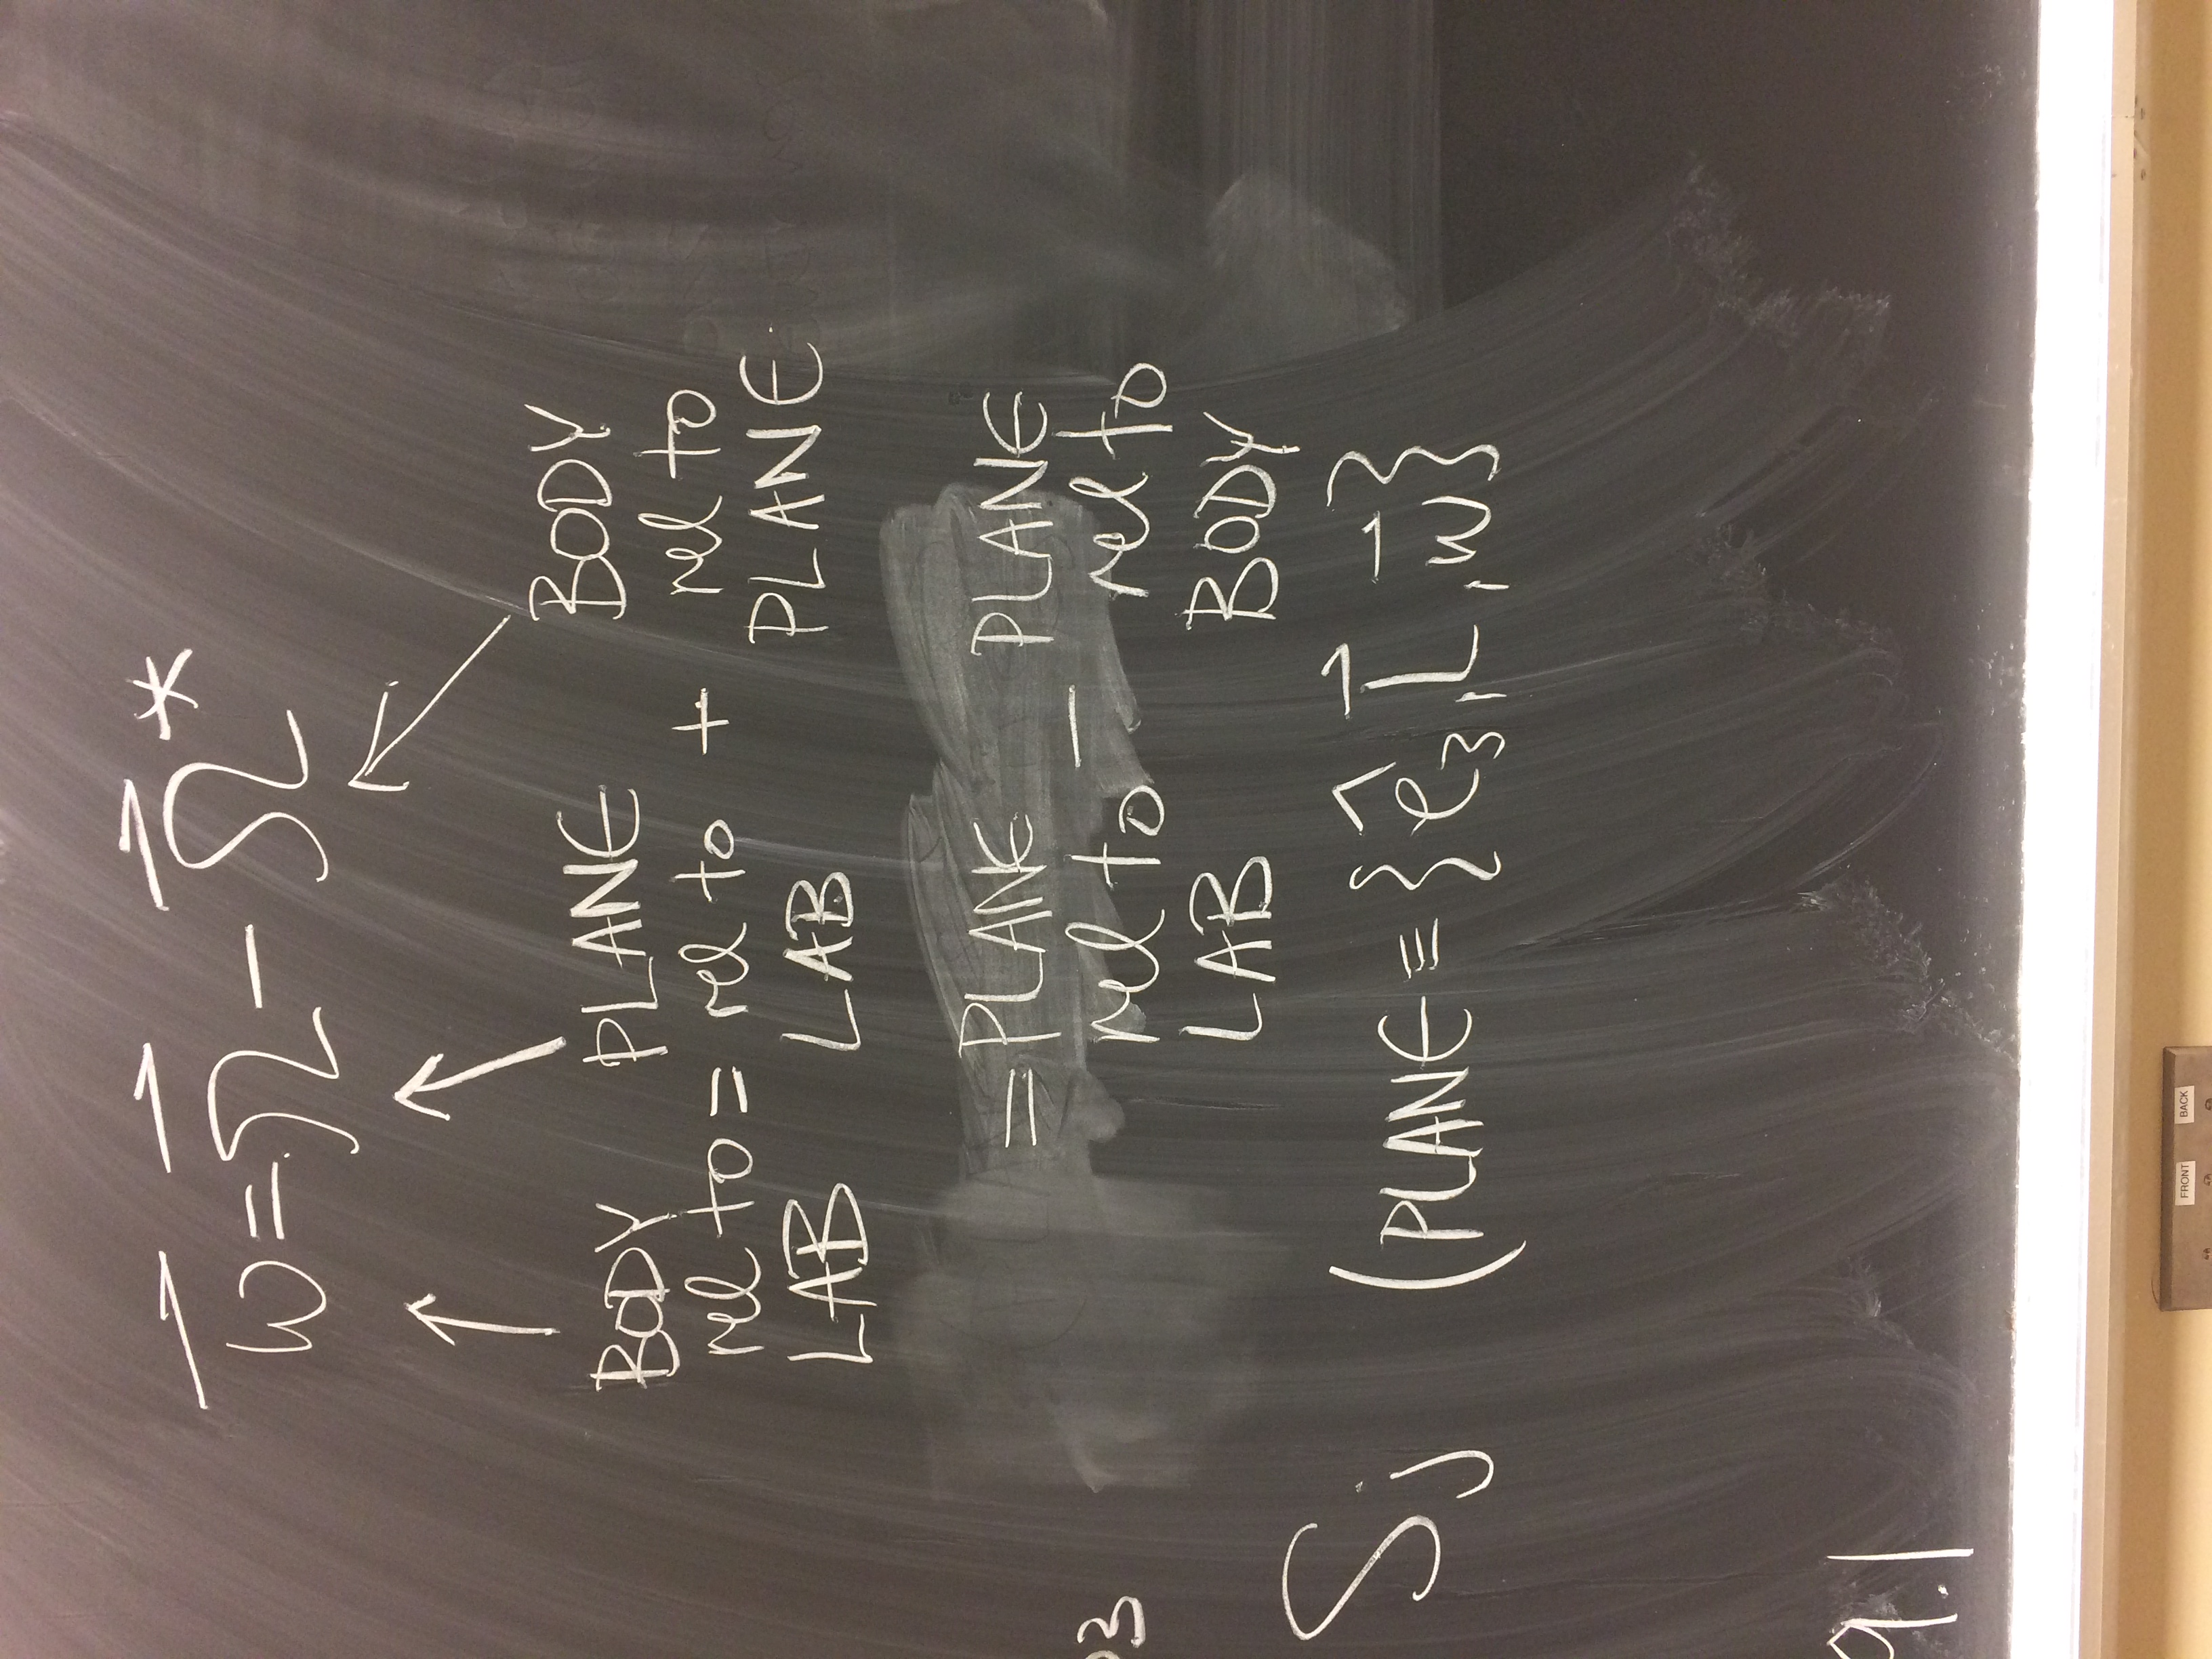 ω⃗ = Ω⃗ - Ω⃗*
BODY rel to LAB = PLANE rel to LAB + BODY rel to PLANE
= PLANE rel to LAB - PLANE rel to BODY
(PLANE ≡ {ê₃, L⃗, ω⃗}
FRONT BACK